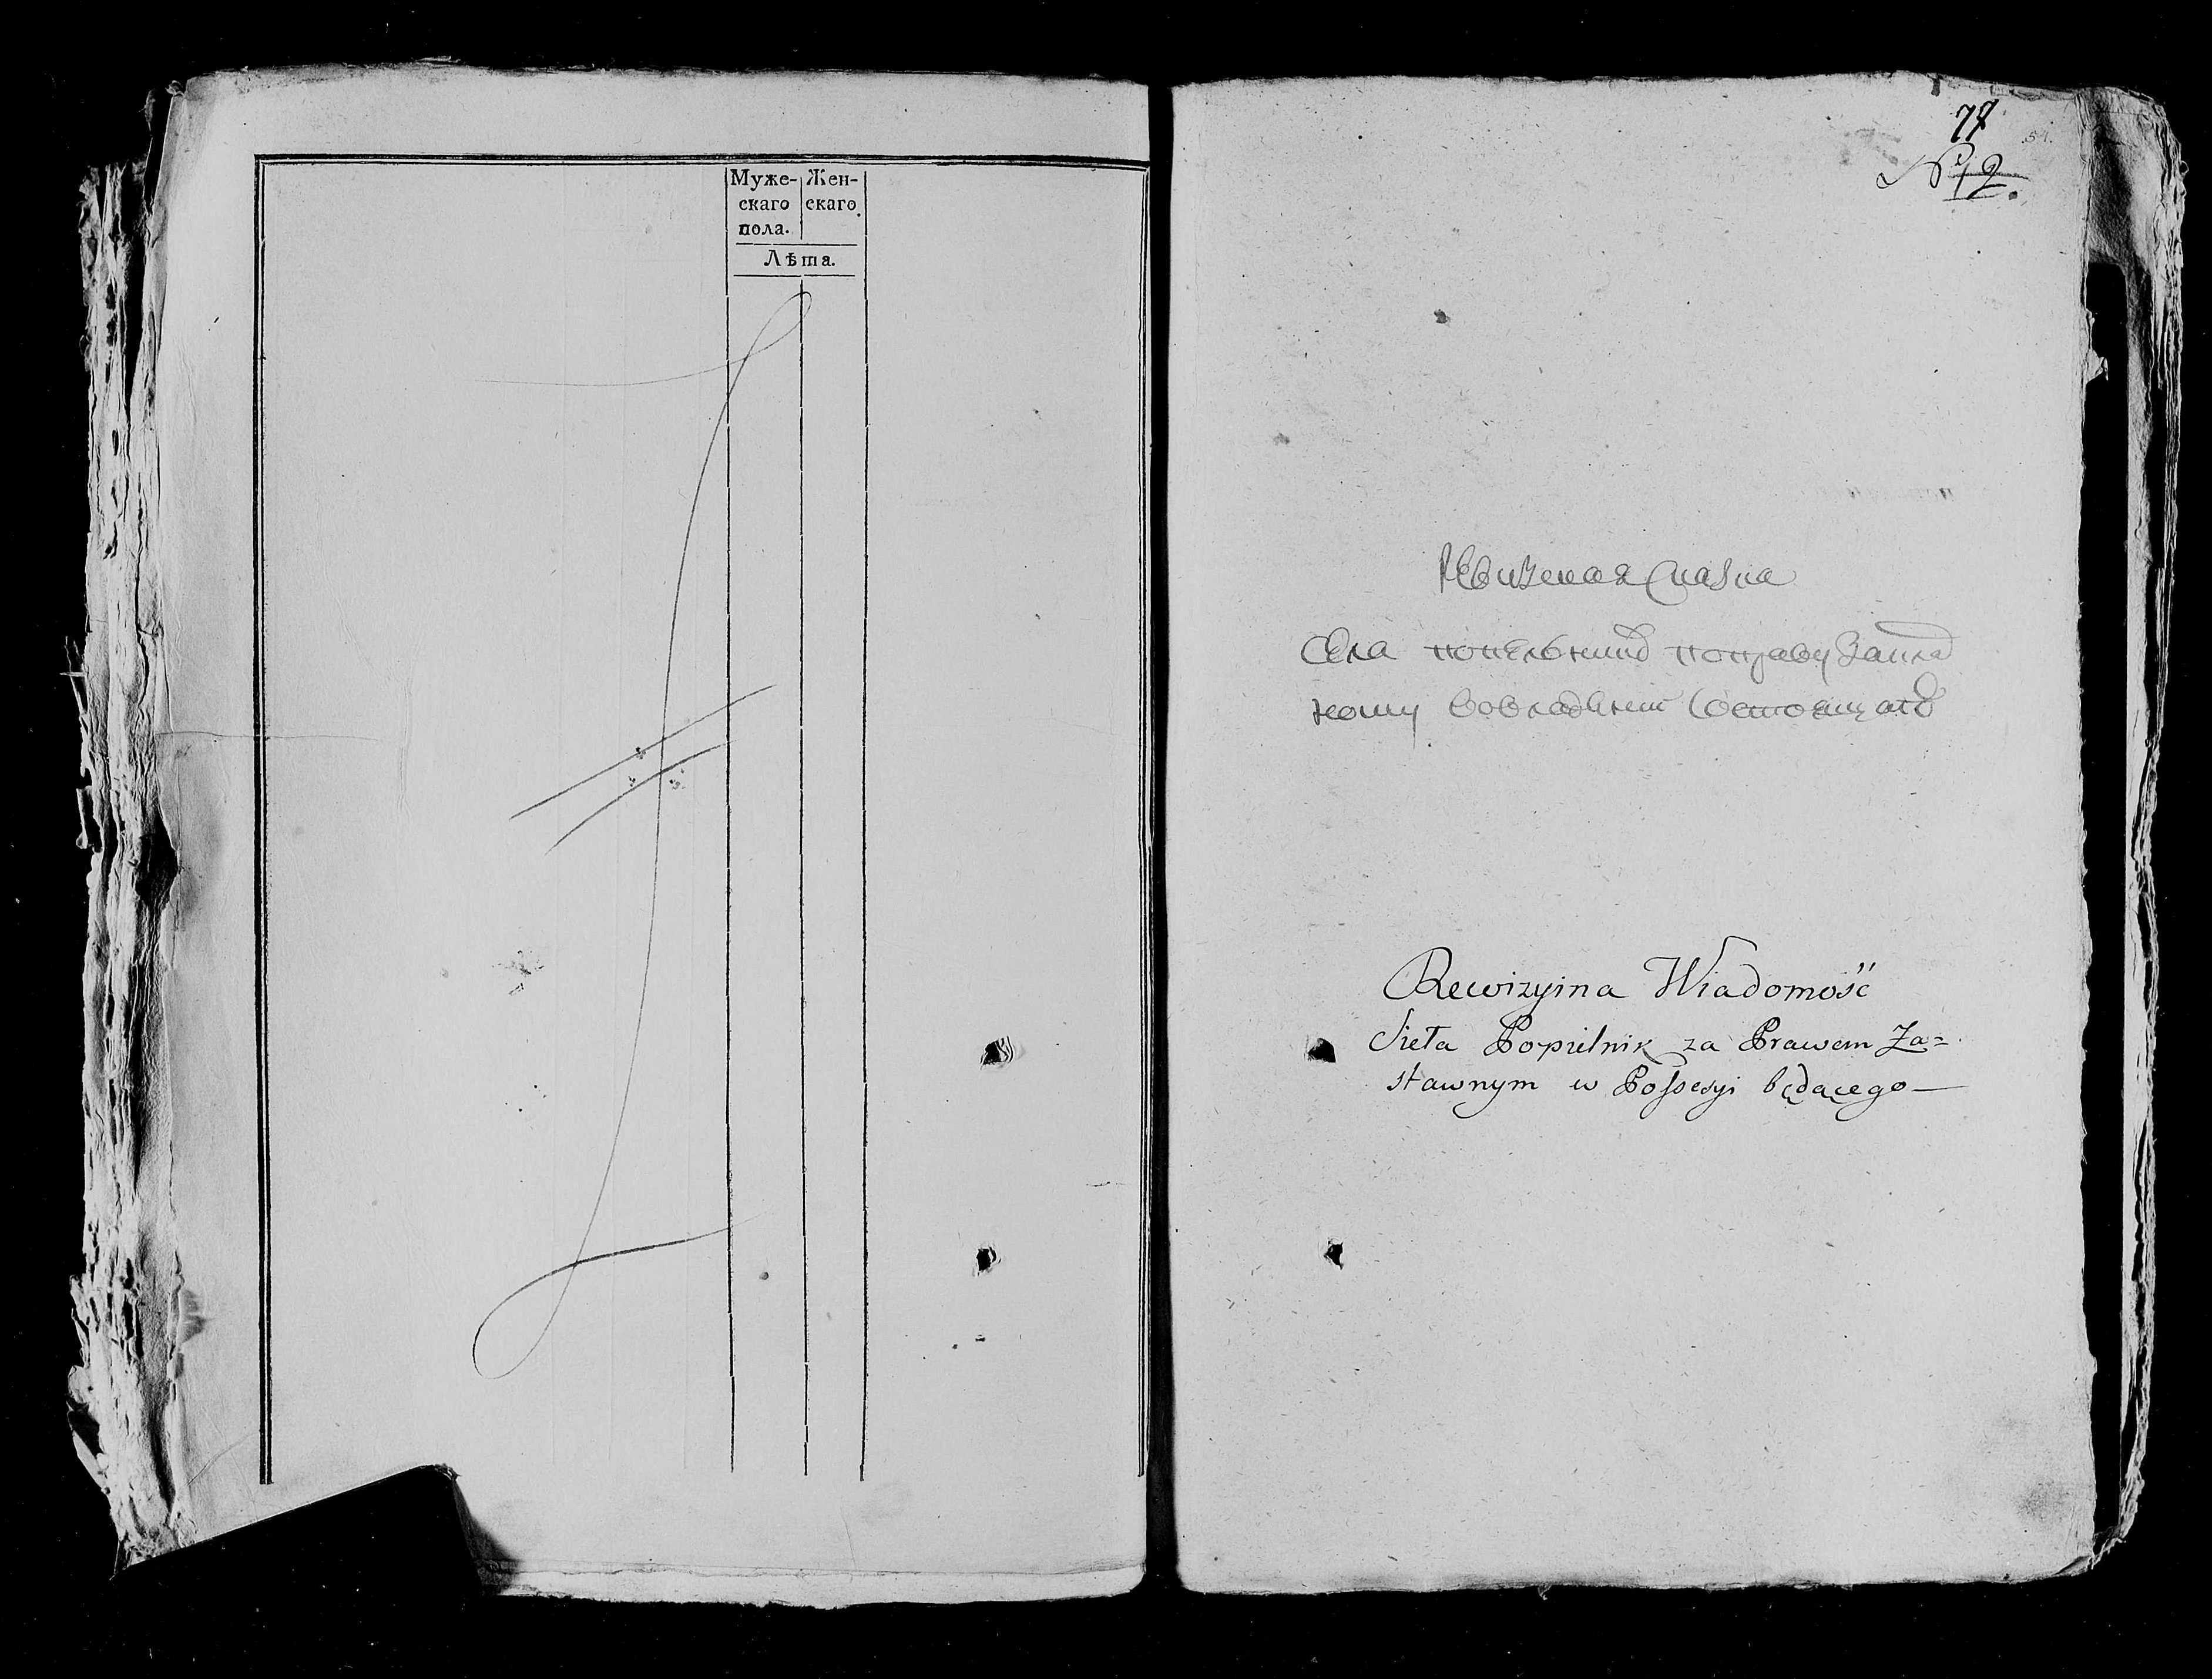 Муже- Жен-
скаго скаго
пола.
Лѣта.
77
№ 12.
Ревизская Сказка
Села попельникъ поправу Заклад
ному вовладении Состоящаго
Rewizyina Wiadomość
Sieła Popielnik za Prawem Za=
stawnym w Possesyi będącego